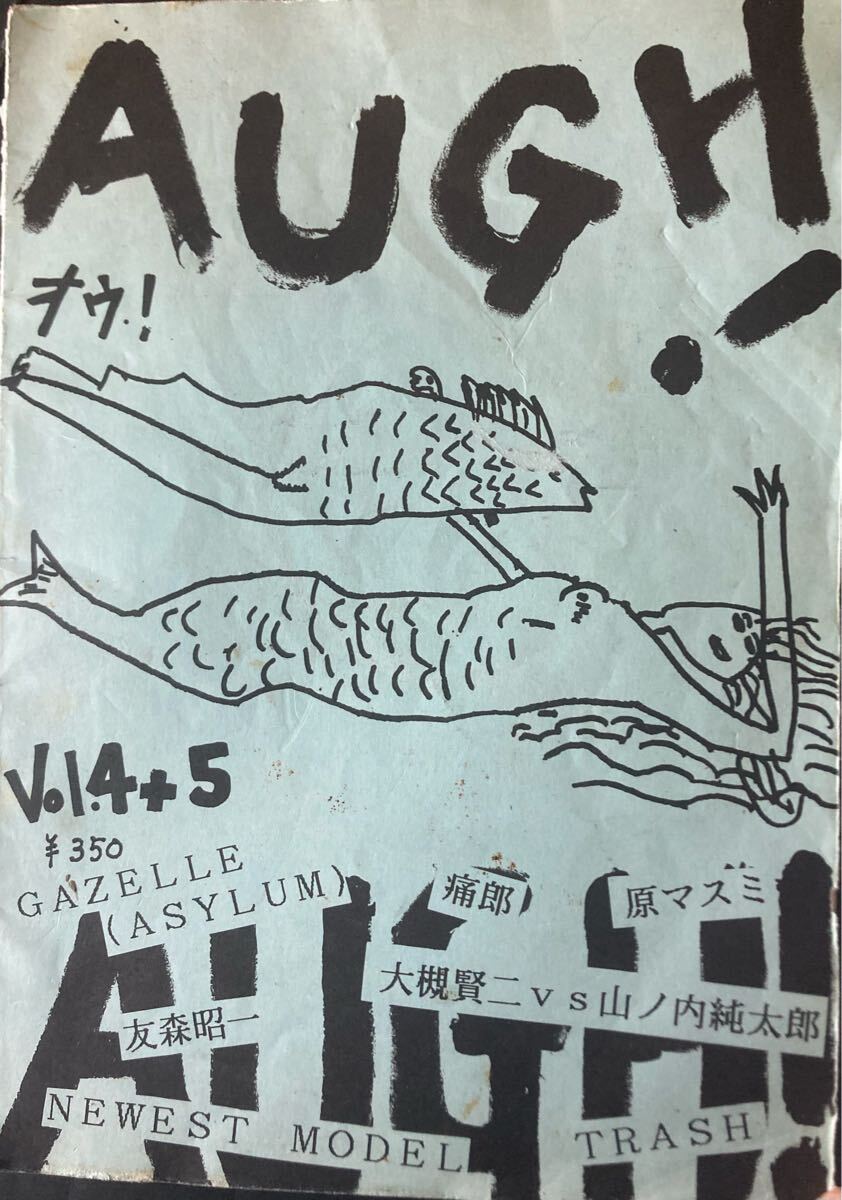 AUGH!
オウ.!
Vol.4+5
¥350
GAZELLE
(ASYLUM)
痛郎
原マスミ
大槻賢二vs山ノ内純太郎
友森昭一
NEWEST MODEL
TRASH
AUGH!